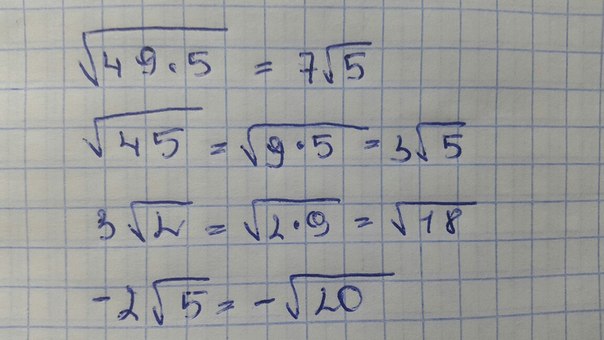 √49·5 = 7√5
√45 = √9·5 = 3√5
3√2 = √2·9 = √18
-2√5 = -√20